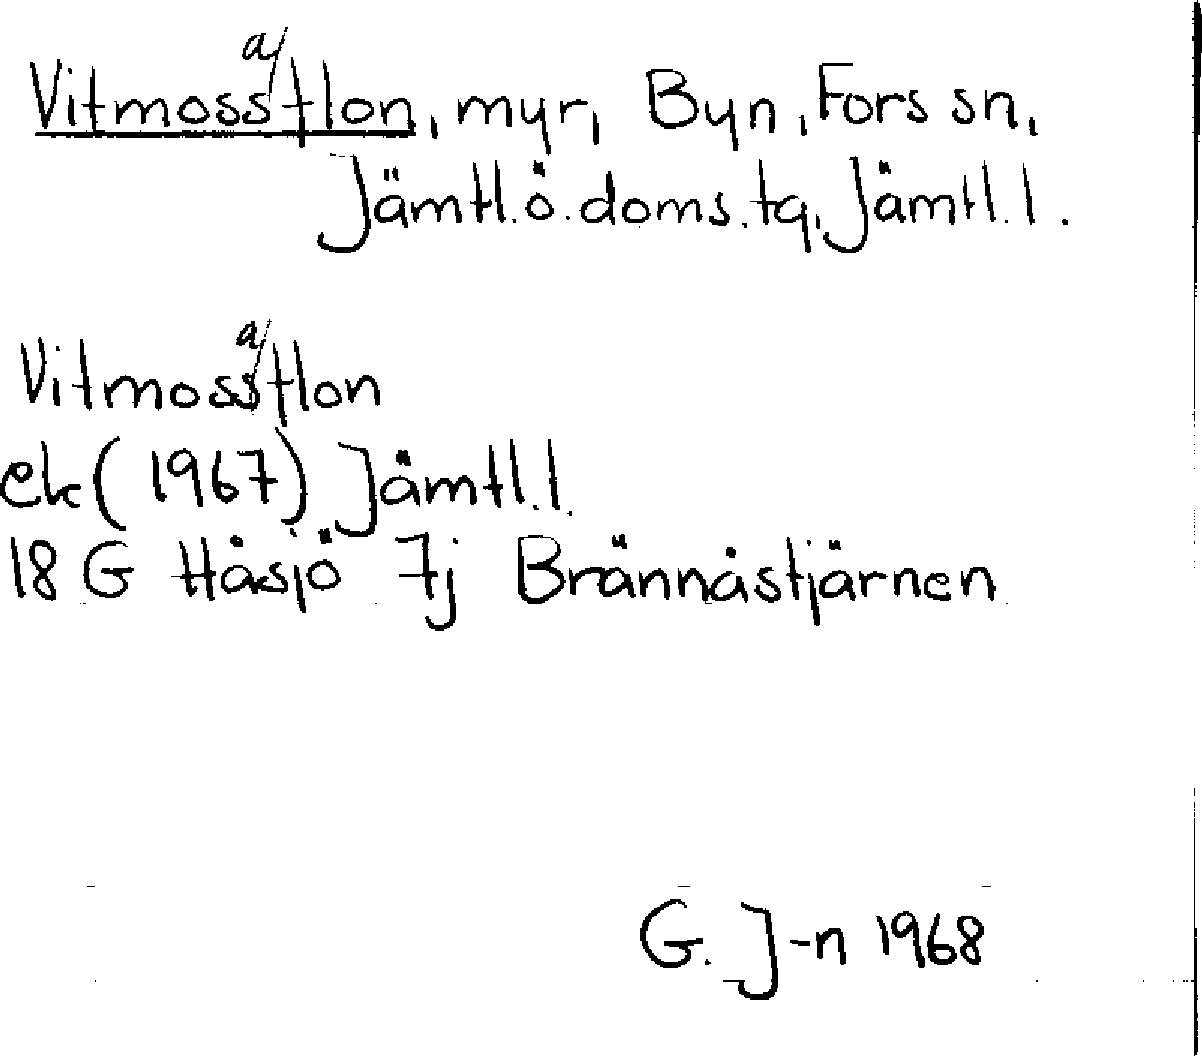 Vitmossaflon, myr, Byn, Fors sn,
Jämtl. ö. doms. tg, Jämtl. l.
Vitmossaflon
ek (1967) Jämtl. l.
18 G Håsjö 7j Brännåstjärnen
G. J-n 1968